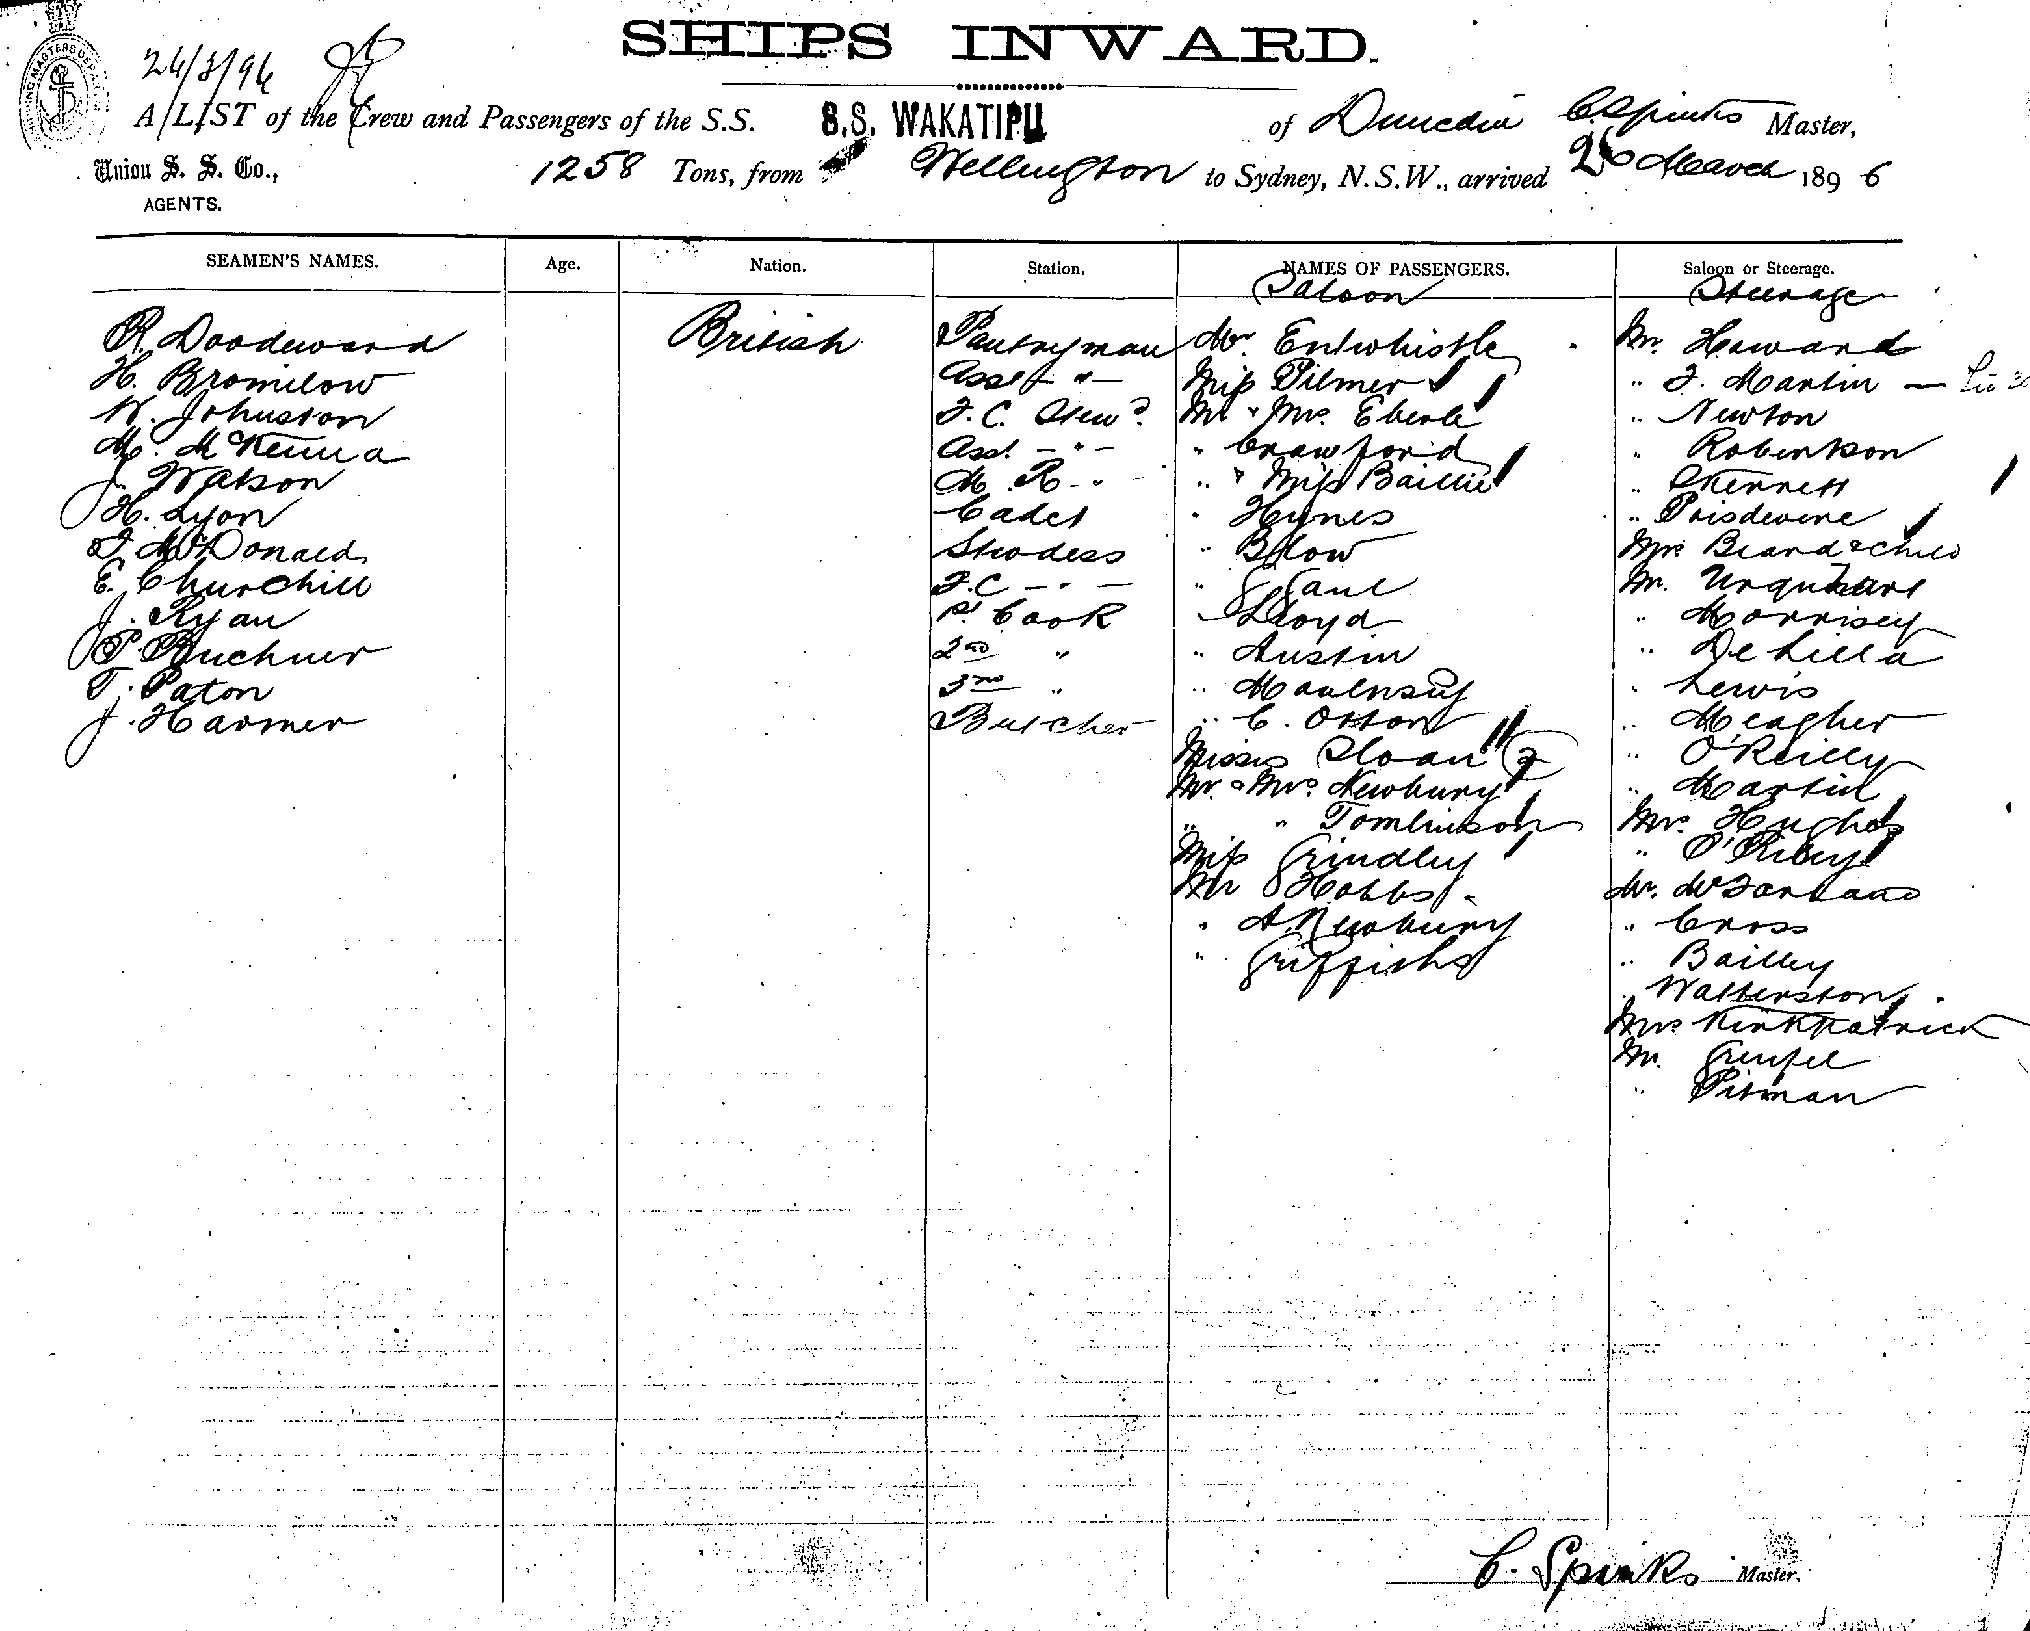 SHIPS INWARD.
26/3/96
A LIST of the Crew and Passengers of the S.S. S.S. WAKATIPU of Dunedin C Spinks Master,
Union S. S. Co., 1258 Tons, from Wellington to Sydney, N.S.W., arrived 26 March 1896
AGENTS.
SEAMEN'S NAMES. Age. Nation. Station. NAMES OF PASSENGERS. Saloon or Steerage.
Saloon Steerage
R. Doodeward British Pantryman Mr. Entwhistle Mr. Howard
H. Bromilow Asst -"- Miss Pilmer " J. Martin
W. Johnston F.C. Stewd. Mr & Mrs. Eberle " Newton
M. McKenna Asst. -"- " Crawford " Robertson
J. Watson M. R -"- " " Miss Baillie " Skerrett
H. Lyon Cadet " Hynes "
J. McDonald Stwdess " Blow Mrs Beard & child
E. Churchill F.C -"- " Gaul Mr. Urquhart
J. Ryan 1st Cook " Lloyd " Morrisey
P. Buchner 2nd " " Austin "
T. Paton 3rd " " " Lewis
J. Harmer Butcher " C. Orton " Meagher
Misses Sloan (2) " O'Reilly
Mr. & Mrs. Newbury " Martin
" " Tomlinson Mrs. Hughes
Miss Grindley "
Mr Hobbs Mr. McFarland
" A. Newbury " Cross
" Griffiths " Bailley
" Watterston
Mrs Kirkpatrick
Mr. Grenfel
" Pitman
C. Spinks Master.